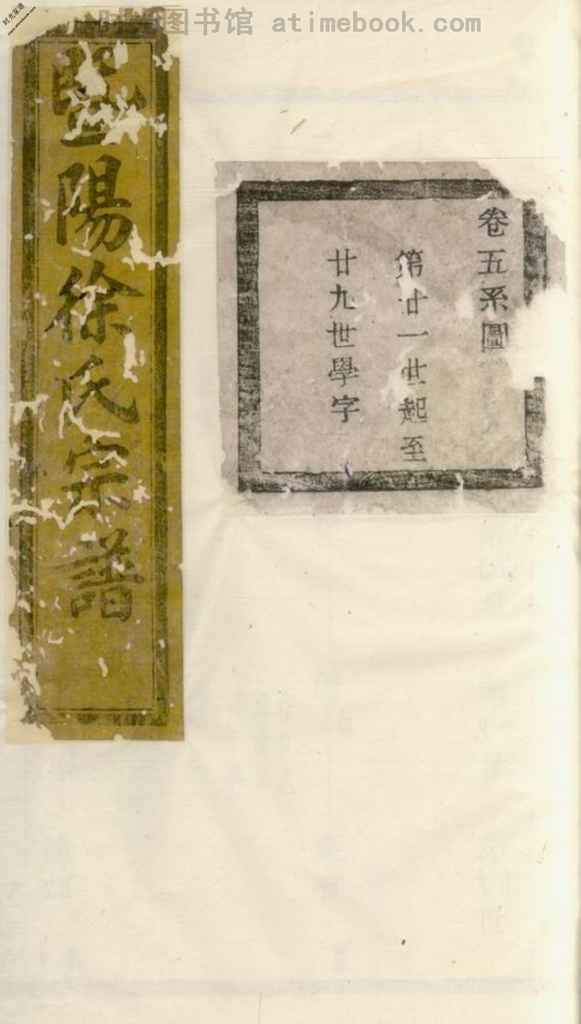 图书馆 atimebook.com
卷五系圖
第廿一世起至
廿九世學字
暨陽徐氏宗譜